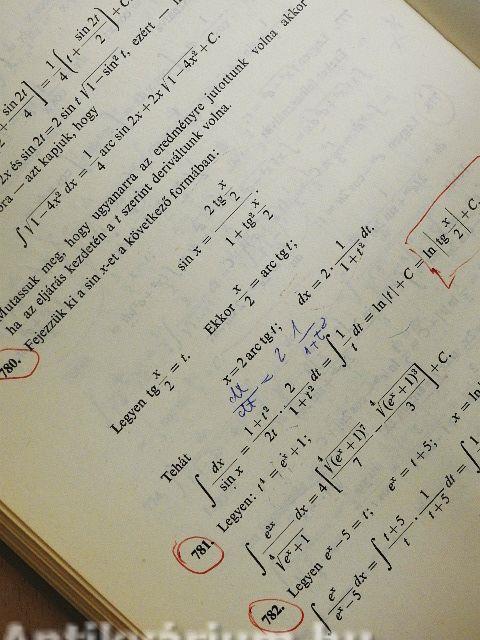 + sin 2t / 4] = 1/4 (t + sin 2t / 2) + C.
2x és sin 2t = 2 sin t √(1 − sin² t), ezért —
— azt kapjuk, hogy
∫ √(1 − 4x²) dx = 1/4 arc sin 2x + 2x √(1 − 4x²) + C.
Mutassuk meg, hogy ugyanarra az eredményre jutottunk volna akkor
ha az eljárás kezdetén a t szerint deriváltunk volna.
780. Fejezzük ki a sin x-et a következő formában:
sin x = 2 tg x/2 / (1 + tg² x/2).
Legyen tg x/2 = t. Ekkor x/2 = arc tg t;
x = 2 arc tg t; dx = 2 · 1/(1 + t²) dt.
dx/dt = 2 · 1/(1+t²)
Tehát
∫ dx/sin x = ∫ (1 + t²)/2t · 2/(1 + t²) dt = ∫ 1/t dt = ln |t| + C = ln |tg x/2| + C.
781. Legyen: t⁴ = eˣ + 1;
∫ e²ˣ/⁴√(eˣ + 1) dx = 4 [⁴√((eˣ + 1)⁷)/7 − ⁴√((eˣ + 1)³)/3] + C.
782. Legyen eˣ − 5 = t; eˣ = t + 5; x = ln
∫ eˣ/(eˣ − 5) dx = ∫ (t + 5)/t · 1/(t + 5) dt = ∫
Antikvárium.hu